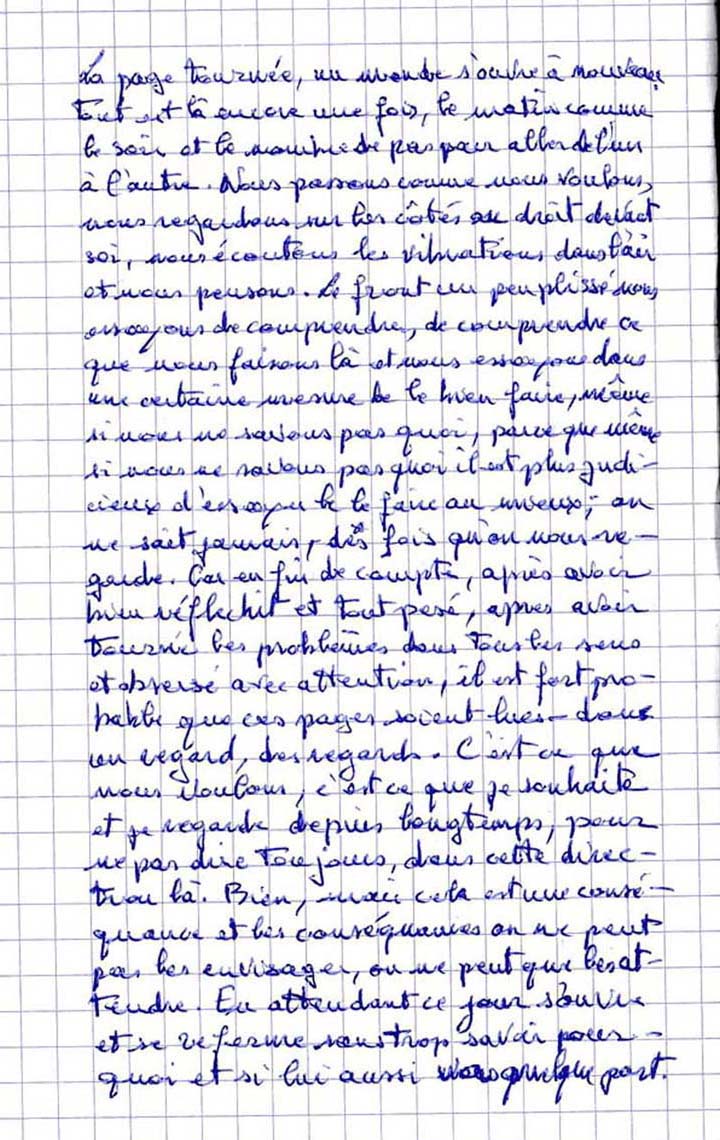 La page tournée, un monde s'ouvre à nouveau
tout est là encore une fois, le matin comme
le soir et le nombre de pas pour aller de l'un
à l'autre. Nous passons comme nous voulons,
nous regardons sur les côtés ou droit devant
soi, nous écoutons les vibrations dans l'air
et nous pensons. Le front un peu plissé nous
essayons de comprendre, de comprendre ce
que nous faisons là et nous essayons dans
une certaine mesure de le bien faire, même
si nous ne savons pas quoi, parce que même
si nous ne savons pas quoi il est plus judi-
cieux d'essayer de le faire au mieux; on
ne sait jamais, dès fois qu'on nous re-
garde. Car en fin de compte, après avoir
bien réfléchit et tout pesé, après avoir
tourné les problèmes dans tous les sens
et observé avec attention, il est fort pro-
bable que ces pages soient lues - donc
un regard, des regards. C'est ce que
nous voulons, c'est ce que je souhaite
et je regarde depuis longtemps, pour
ne pas dire toujours, dans cette direc-
tion là. Bien, mais cela est une consé-
quance et les conséquances on ne peut
pas les envisager, on ne peut que les at-
tendre. En attendant ce jour s'ouvre
et se referme sans trop savoir pour-
quoi et si lui aussi quelque part.